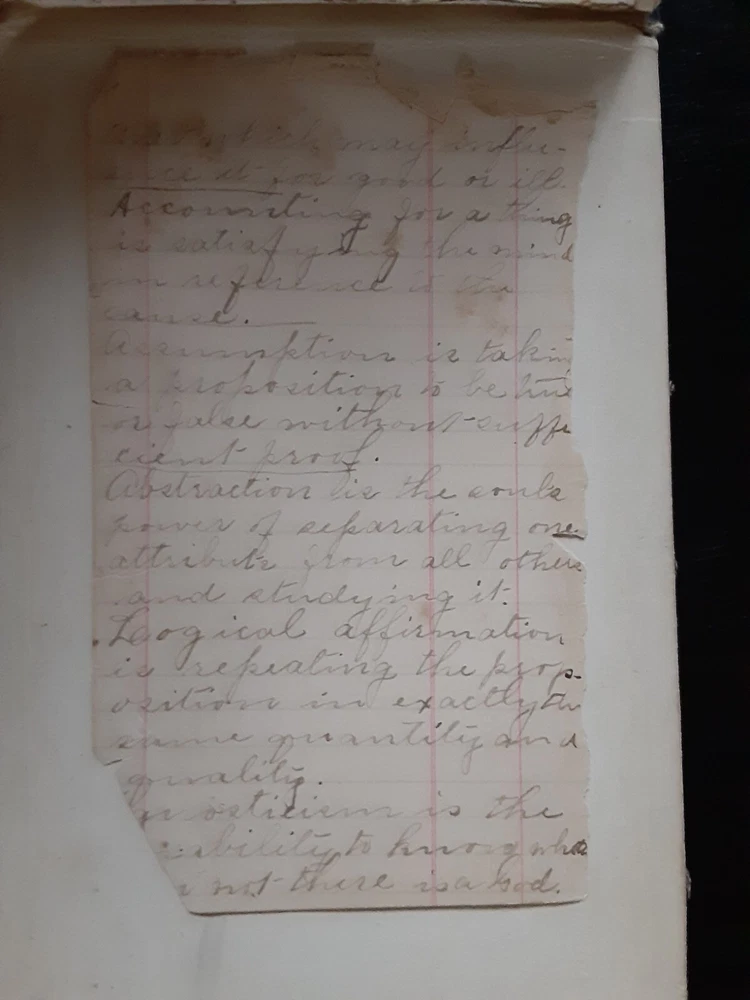 may influ-
it for good or ill.
Accounting for a thing
is satisfying the mind
in reference to the
cause.
Assumption is takin
a proposition to be true
or false without suffi
cient proof.
Abstraction is the souls
power of separating one
attribute from all others
and studying it.
Logical affirmation
is repeating the prop-
osition in exactly the
same quantity and
quality.
osticism is the
ability to know whe
not there is a God.